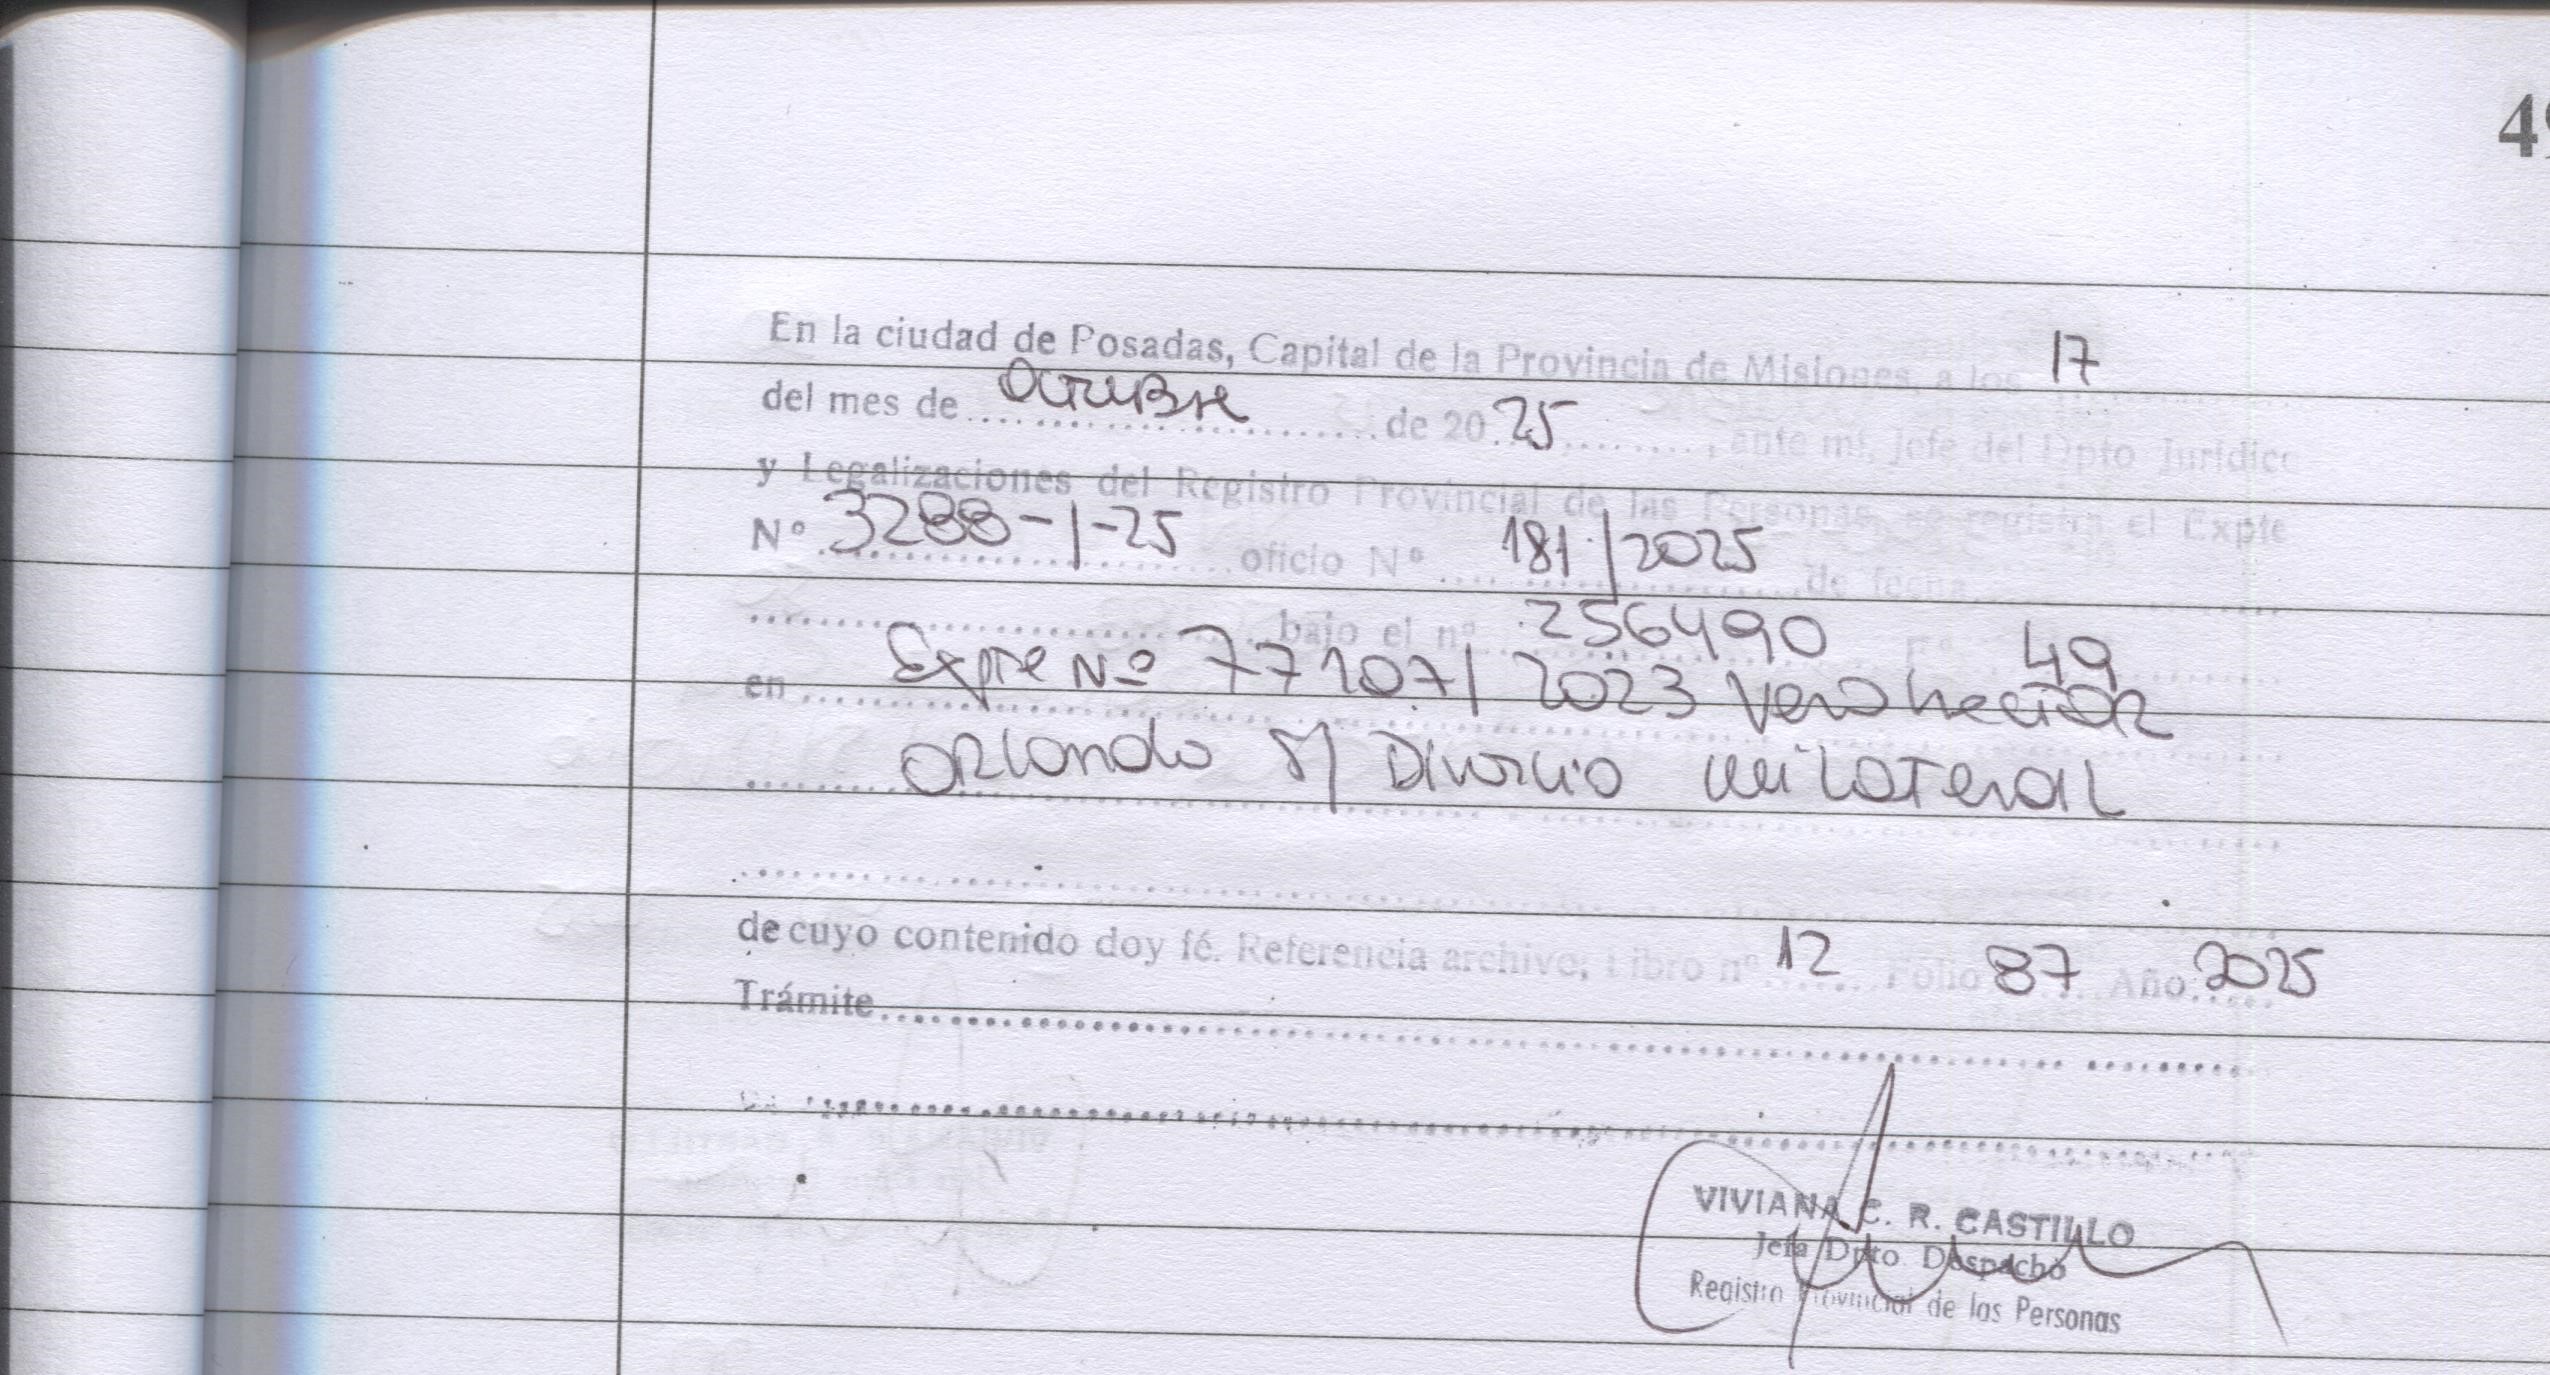 49
En la ciudad de Posadas, Capital de la Provincia de Misiones, a los 17
del mes de Octubre de 20 25, ante mí, Jefe del Dpto Jurídico
y Legalizaciones del Registro Provincial de las Personas, se registra el Expte
Nº 3288-1-25 oficio Nº 181/2025 de fecha
bajo el nº 256490 Fº 49
en Expte Nº 77107/2023 Vera Hector
Orlando S/ Divorcio unilateral
de cuyo contenido doy fé. Referencia archivo; Libro nº 12 Folio 87 Año 2025
Trámite
VIVIANA C. R. CASTILLO
Jefa Dpto. Despacho
Registro Provincial de las Personas